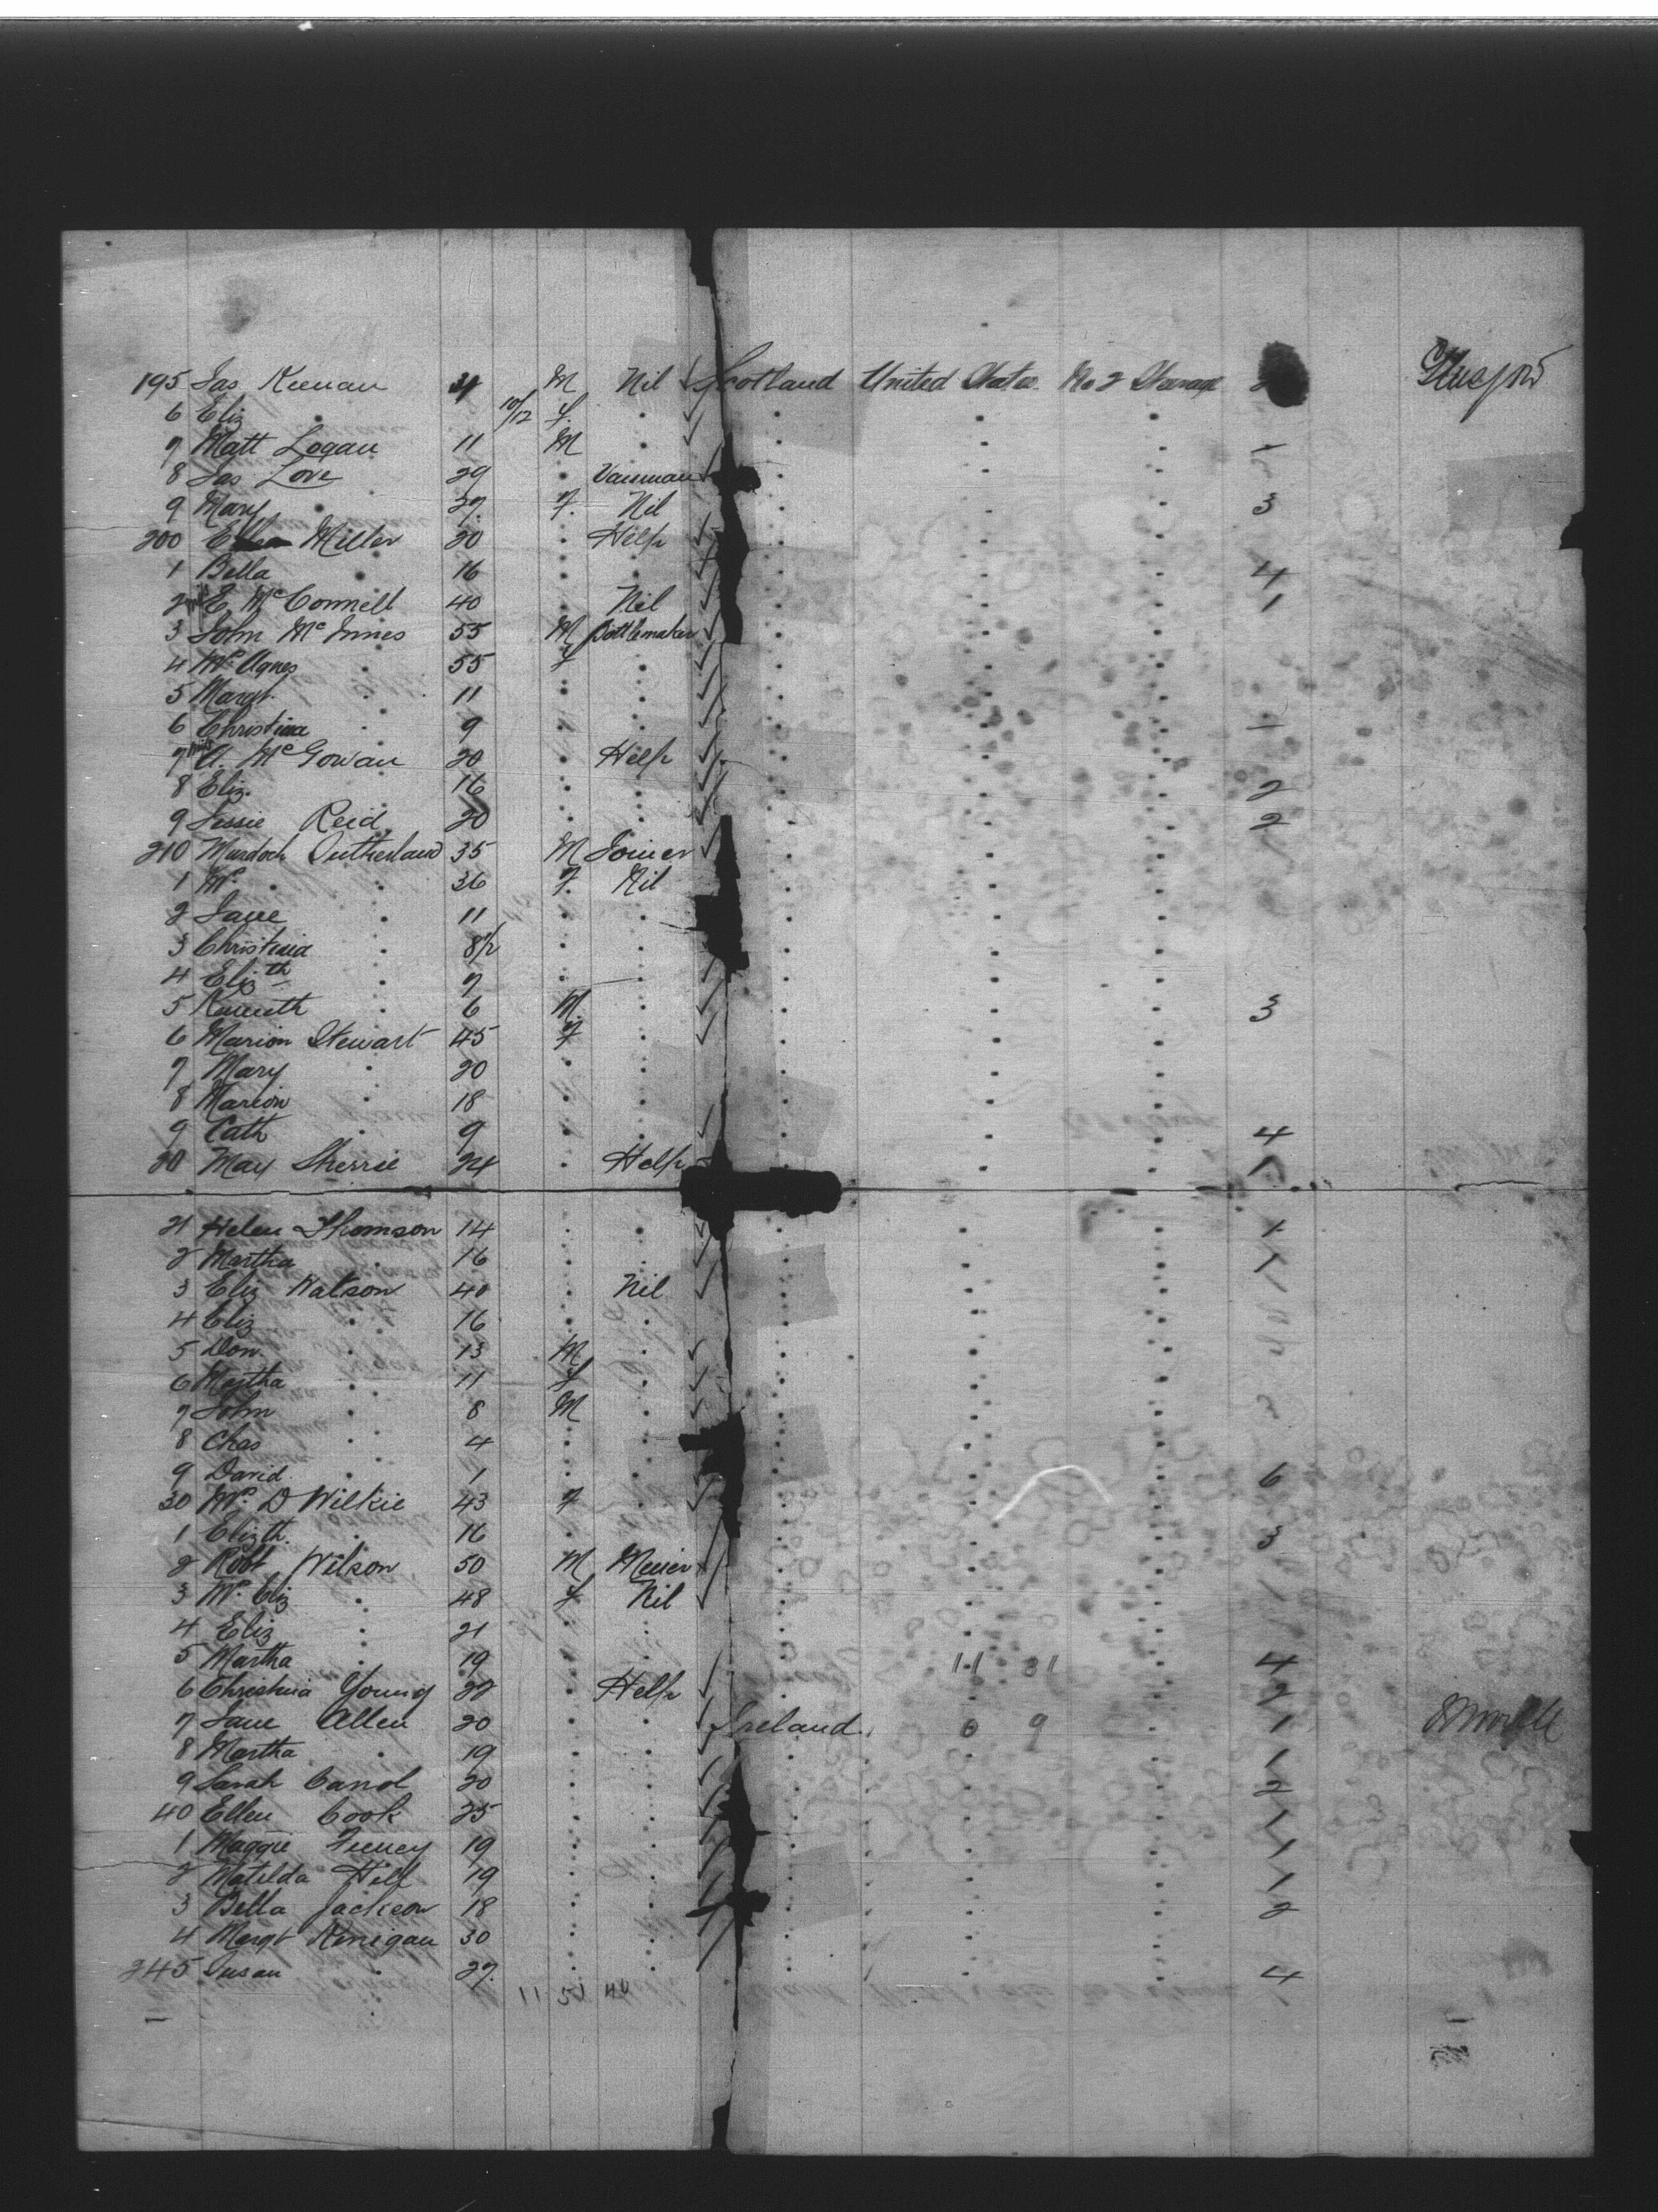 195 Jas Keenan 31 M Nil Scotland United States No 2 Steerage Glasgow
6 Eliz " 10/12 f. "
7 Matt Logan 11 M " 1
8 Jas Love 29 Vanman
9 Mary " 27 F. Nil 3
200 Miller 20 " Help
1 Bella " 16 " " 4
2 Miss E. McConnell 40 " Nil 1
3 John McInnes 55 M Bottlemaker
4 Mrs Agnes " 55 f "
5 Margt. " 11 " "
6 Christina " 9 " "
7 Miss A. McGowan 20 " Help
8 Eliz. " 16 " " 2
9 Jessie Reid 20 " " 2
210 Murdoch Sutherland 35 M Joiner
1 Mrs. " 36 F. Nil
2 Jane " 11 " "
3 Christina " 8 1/2 " "
4 Elizth " 7 " "
5 Kenneth " 6 M. " 3
6 Marion Stewart 45 F "
7 Mary " 20 " "
8 Marion " 18 " "
9 Cath " 9 " " 4
20 May Sherrie 24 " Help 1
21 Helen Thomson 14 " " 1
2 Martha " 16 " " 1
3 Eliz Watson 40 " Nil
4 Eliz " 16 " "
5 Don. " 13 M "
6 Martha " 11 f "
7 John " 8 M "
8 Chas " 4 " "
9 David " 1 " " 6
30 Mrs. D Wilkie 43 F "
1 Elizth. " 16 " " 3
2 Robt Wilson 50 M Miner
3 Mrs. Eliz " 48 f Nil
4 Eliz " 21 " "
5 Martha " 19 " " 11 31 4
6 Christina Young 22 " Help 2
7 Jane Allen 20 " " Ireland 0 9 1
8 Martha " 19 " " 1
9 Sarah 20 " " 2
40 Ellen Cook 25 " " 1
1 Maggie Feeney 19 " " 1
2 Matilda Hill 19 " " 1
3 Bella Jackson 18 " " 2
4 Margt Kinigan 30 " "
245 Susan " 27. " " 4
11 51 40